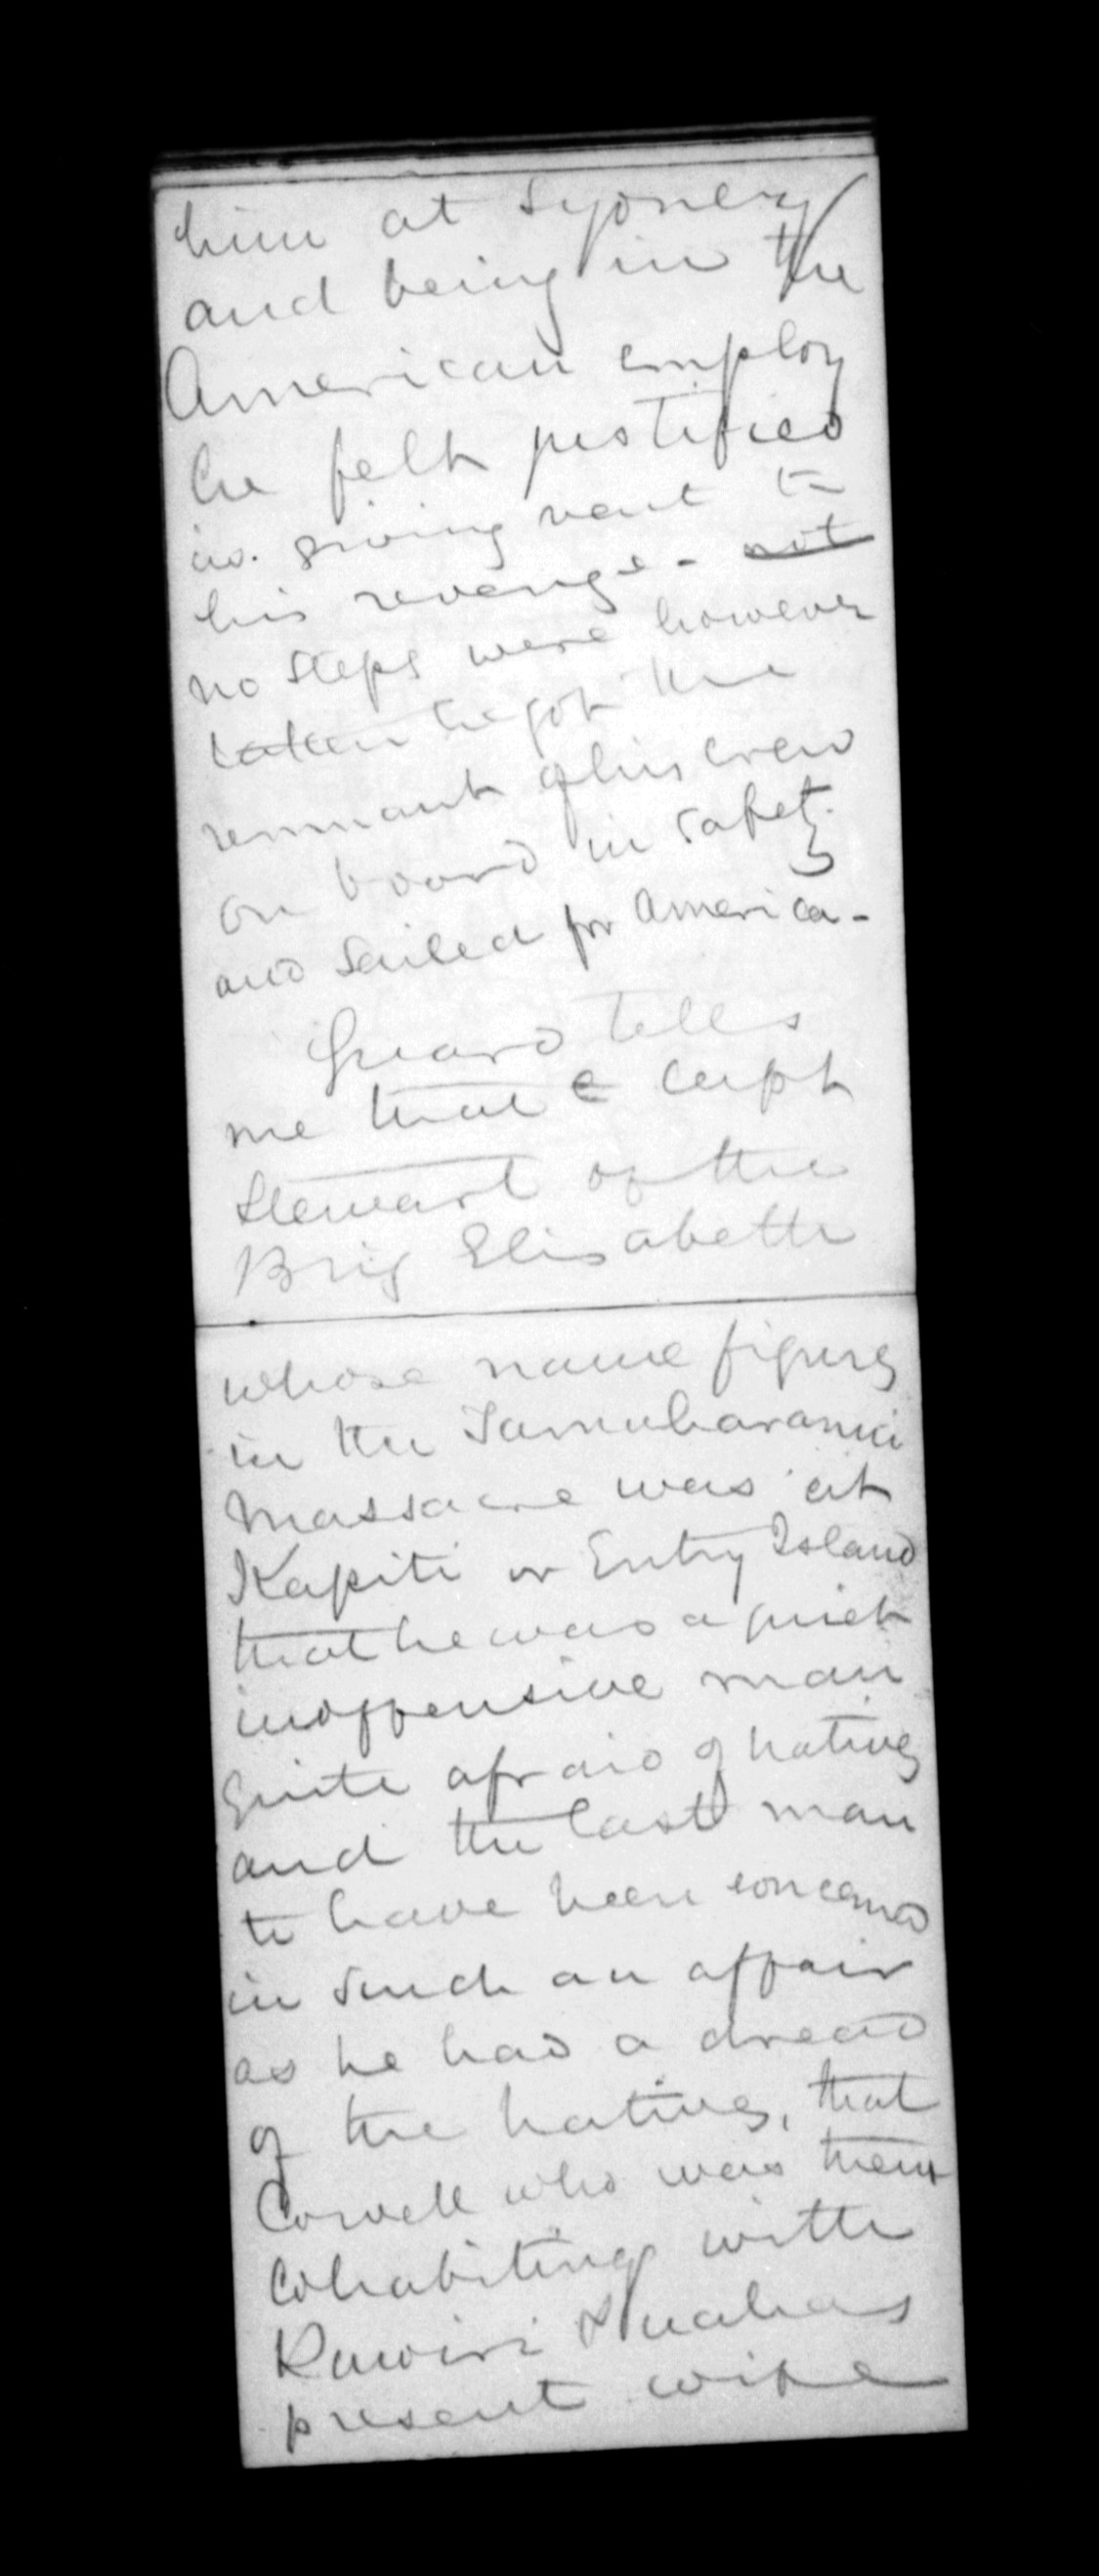 him at Sydney
and being in the
American employ
he felt justified
in giving vent to
his revenge - not
no steps were however
taken he got the
remnant of his crew
on board in safety
and sailed for America -
Guard tells
me that Capt
Stewart of the
Brig Elisabeth
whose name figures
in the Tamaharanui
Massacre was at
Kapiti or Entry Island
that he was a quiet
inoffensive man
quite afraid of natives
and the last man
to have been concerned
in such an affair
as he had a dread
of the natives, that
Cowell who was then
cohabiting with
Rawiri Puahas
present wife